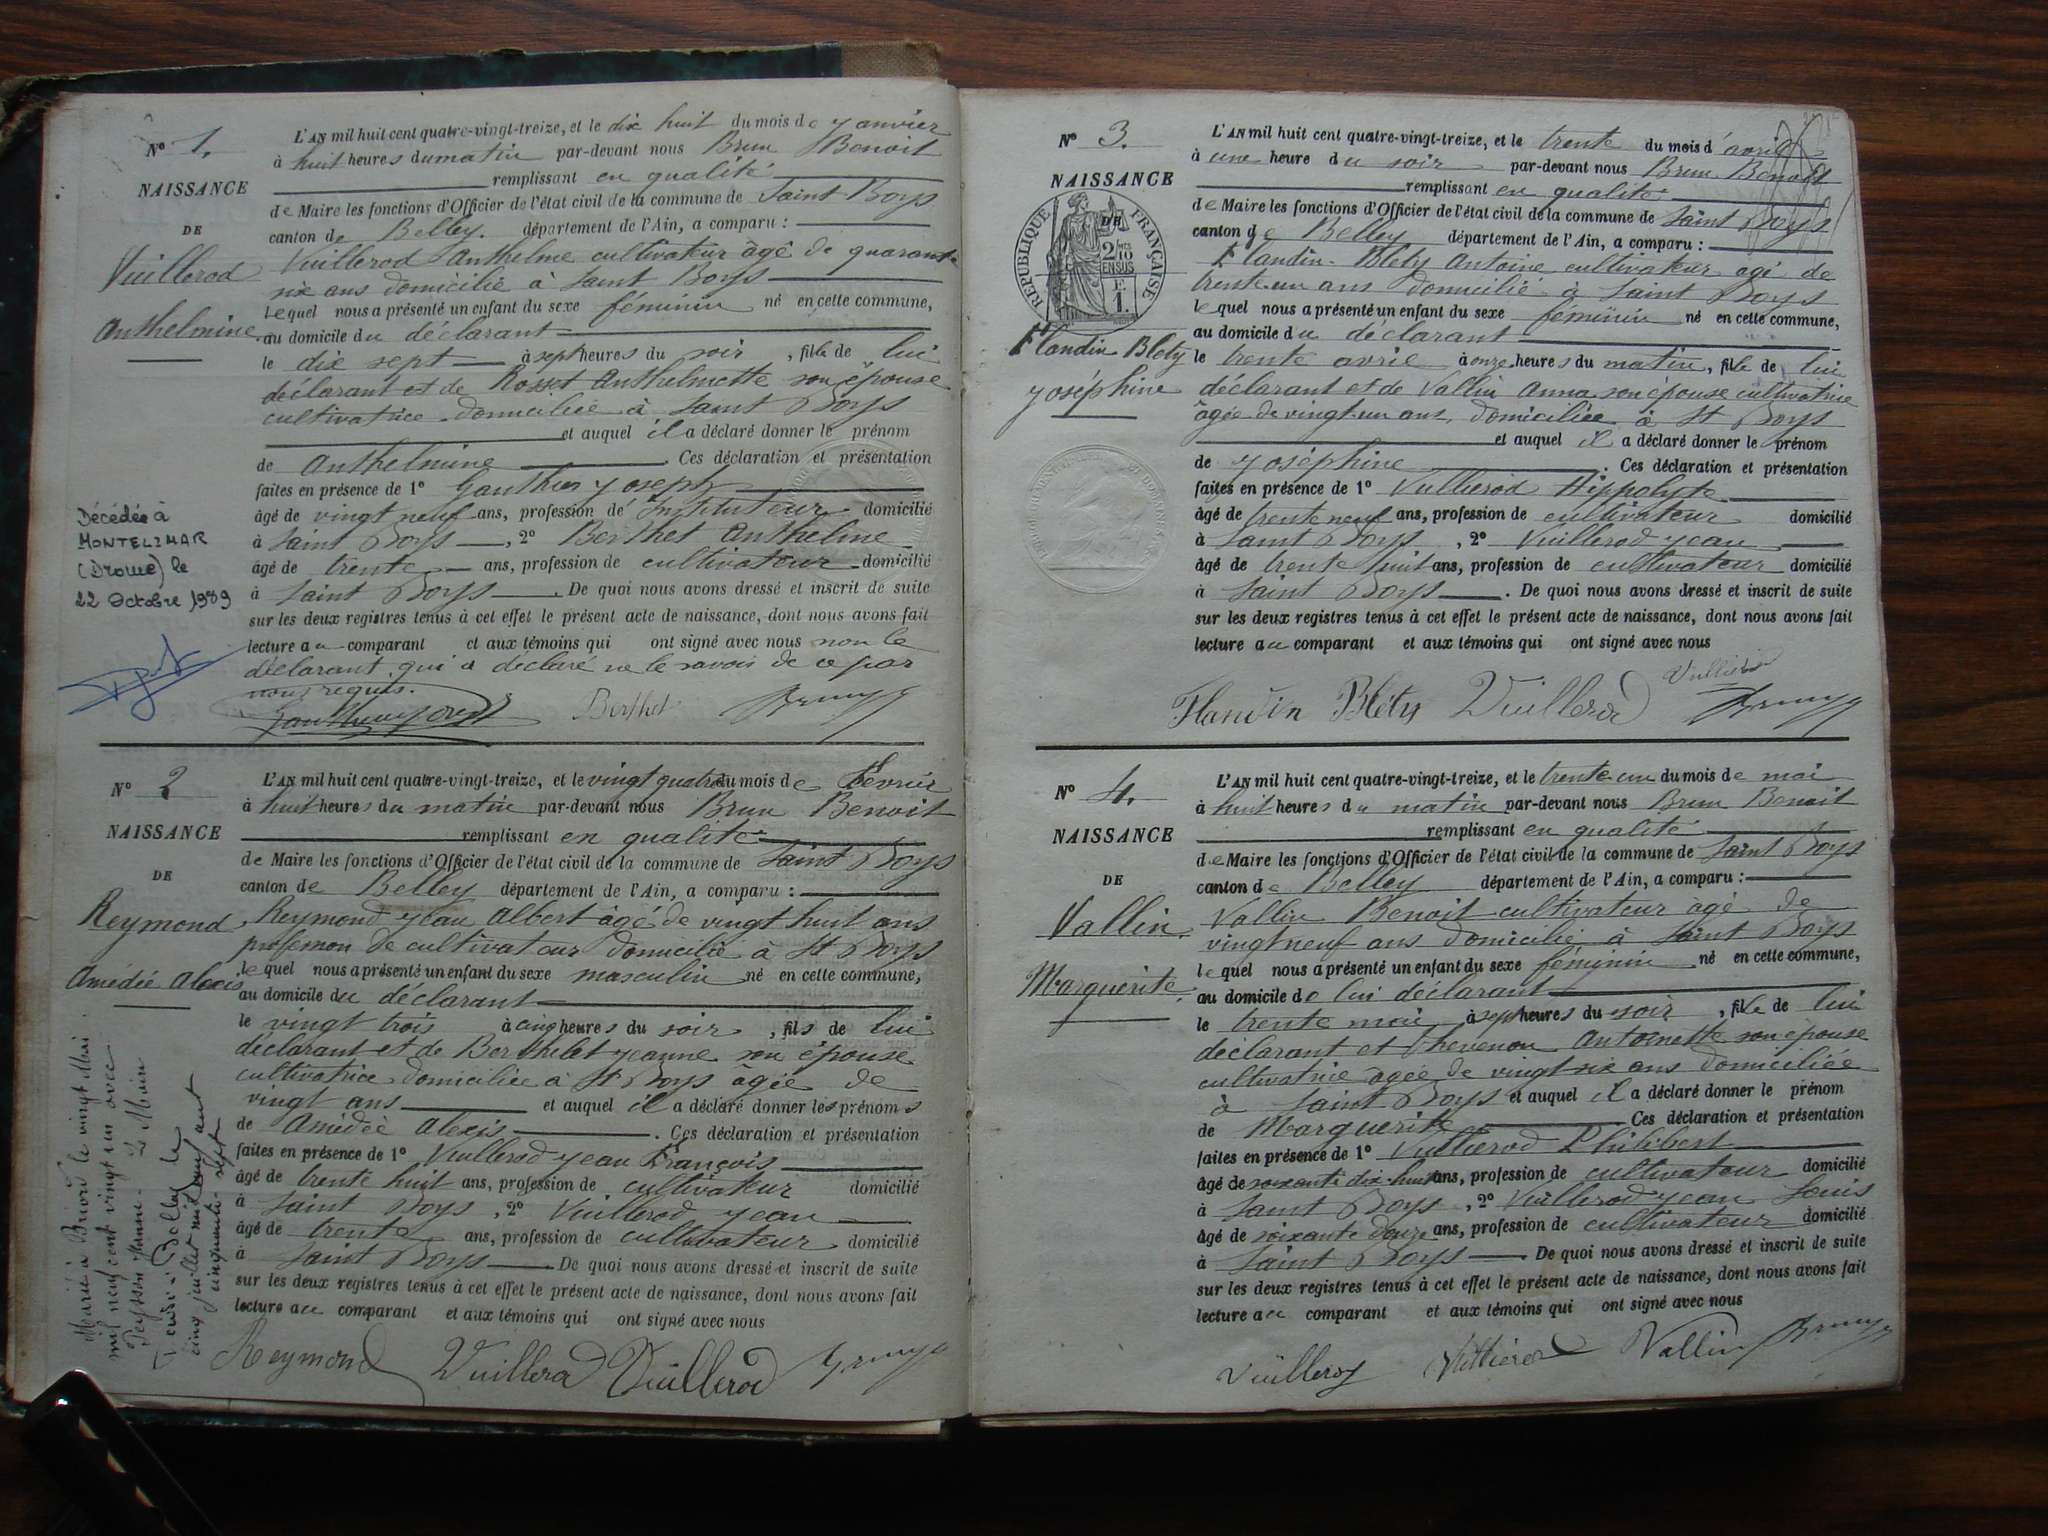 N° 1.
NAISSANCE
DE
Vuillerod
Anthelmine
L'AN mil huit cent quatre-vingt-treize, et le dix huit du mois de Janvier
à huit heures du matin par-devant nous Brun Benoit
remplissant en qualité
de Maire les fonctions d'Officier de l'état civil de la commune de Saint-Boys
canton de Belley. département de l'Ain, a comparu :
Vuillerod Anthelme cultivateur âgé de quarante
six ans domicilié à Saint Boys
lequel nous a présenté un enfant du sexe féminin né en cette commune,
au domicile du déclarant
le dix sept à sept heures du soir, fille de lui
déclarant et de Rosset Anthelmette son épouse
cultivatrice domiciliée à Saint Boys
et auquel il a déclaré donner le prénom
de Anthelmine. Ces déclaration et présentation
faites en présence de 1° Gauthier Joseph
âgé de vingt neuf ans, profession de Instituteur domicilié
à Saint Boys, 2° Berthet Anthelme
âgé de trente ans, profession de cultivateur domicilié
à Saint Boys. De quoi nous avons dressé et inscrit de suite
sur les deux registres tenus à cet effet le présent acte de naissance, dont nous avons fait
lecture au comparant et aux témoins qui ont signé avec nous non le
déclarant qui a déclaré ne le savoir de ce par
nous requis.
Berthet
Décédée à
MONTELIMAR
(Drome) le
22 Octobre 1989
N° 2
NAISSANCE
DE
Reymond
Amédée Alexis
L'AN mil huit cent quatre-vingt-treize, et le vingt quatre du mois de Février
à huit heures du matin par-devant nous Brun Benoit
remplissant en qualité
de Maire les fonctions d'Officier de l'état civil de la commune de Saint Boys
canton de Belley département de l'Ain, a comparu :
Reymond Jean Albert âgé de vingt huit ans
profession de cultivateur domicilié à St Boys
lequel nous a présenté un enfant du sexe masculin né en cette commune,
au domicile du déclarant
le vingt trois à cinq heures du soir, fils de lui
déclarant et de Berthelet Jeanne son épouse
cultivatrice domiciliée à St Boys âgée de
vingt ans et auquel il a déclaré donner les prénoms
de Amédée Alexis. Ces déclaration et présentation
faites en présence de 1° Vuillerod Jean François
âgé de trente huit ans, profession de cultivateur domicilié
à Saint Boys, 2° Vuillerod Jean
âgé de trente ans, profession de cultivateur domicilié
à Saint Boys De quoi nous avons dressé et inscrit de suite
sur les deux registres tenus à cet effet le présent acte de naissance, dont nous avons fait
lecture au comparant et aux témoins qui ont signé avec nous
Reymond Vuillerod Vuillerod
Marié à Briord le vingt Mai
mil neuf cent vingt un avec
Jeanne
Décédé à Belley le
cinq juillet mil neuf cent
cinquante-sept
N° 3.
NAISSANCE
DE
RÉPUBLIQUE FRANÇAISE
2/10 EN SUS
F. 1.
Flandin Blety
Joséphine
L'AN mil huit cent quatre-vingt-treize, et le trente du mois d'avril
à une heure du soir par-devant nous Brun Benoit
remplissant en qualité
de Maire les fonctions d'Officier de l'état civil de la commune de Saint Boys
canton de Belley département de l'Ain, a comparu :
Flandin-Blety Antoine cultivateur âgé de
trente un ans domicilié à Saint Boys
lequel nous a présenté un enfant du sexe féminin né en cette commune,
au domicile du déclarant
le trente avril à onze heures du matin, fille de lui
déclarant et de Vallin Anna son épouse cultivatrice
âgée de vingt-un ans, domiciliée à St Boys
et auquel il a déclaré donner le prénom
de Joséphine. Ces déclaration et présentation
faites en présence de 1° Vullierod Hippolyte
âgé de trente neuf ans, profession de cultivateur domicilié
à Saint Boys, 2° Vuillerod Jean
âgé de trente huit ans, profession de cultivateur domicilié
à Saint Boys. De quoi nous avons dressé et inscrit de suite
sur les deux registres tenus à cet effet le présent acte de naissance, dont nous avons fait
lecture au comparant et aux témoins qui ont signé avec nous
Flandin Bléty Vuillerod
N° 4.
NAISSANCE
DE
Vallin
Marguerite
L'AN mil huit cent quatre-vingt-treize, et le trente un du mois de mai
à huit heures du matin par-devant nous Brun Benoit
remplissant en qualité
de Maire les fonctions d'Officier de l'état civil de la commune de Saint Boys
canton de Belley département de l'Ain, a comparu :
Vallin Benoit cultivateur âgé de
vingt neuf ans domicilié à Saint Boys
lequel nous a présenté un enfant du sexe féminin né en cette commune,
au domicile de lui déclarant
le trente mai à sept heures du soir, fille de lui
déclarant et Thevenon Antoinette son épouse
cultivatrice âgée de vingt-six ans domiciliée
à Saint Boys et auquel il a déclaré donner le prénom
de Marguerite. Ces déclaration et présentation
faites en présence de 1° Vullierod Philibert
âgé de soixante dix-huit ans, profession de cultivateur domicilié
à Saint Boys, 2° Vuillerod Jean Louis
âgé de soixante douze ans, profession de cultivateur domicilié
à Saint Boys. De quoi nous avons dressé et inscrit de suite
sur les deux registres tenus à cet effet le présent acte de naissance, dont nous avons fait
lecture au comparant et aux témoins qui ont signé avec nous
Vuilleroz Vullierod Vallin